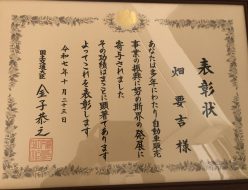 表彰状
畑要吉様
あなたは多年にわたり自動車販売
事業の振興に努め斯界の発展に
寄与されました
その功績はまことに顕著であります
よってこれを表彰します
令和七年十月二十三日
国土交通大臣
金子恭之